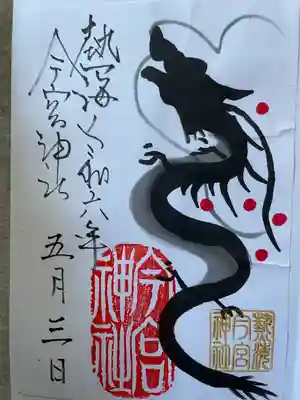 熱海 令和六年
今宮神社
五月三日
今宮
神社
熱海
今宮
神社